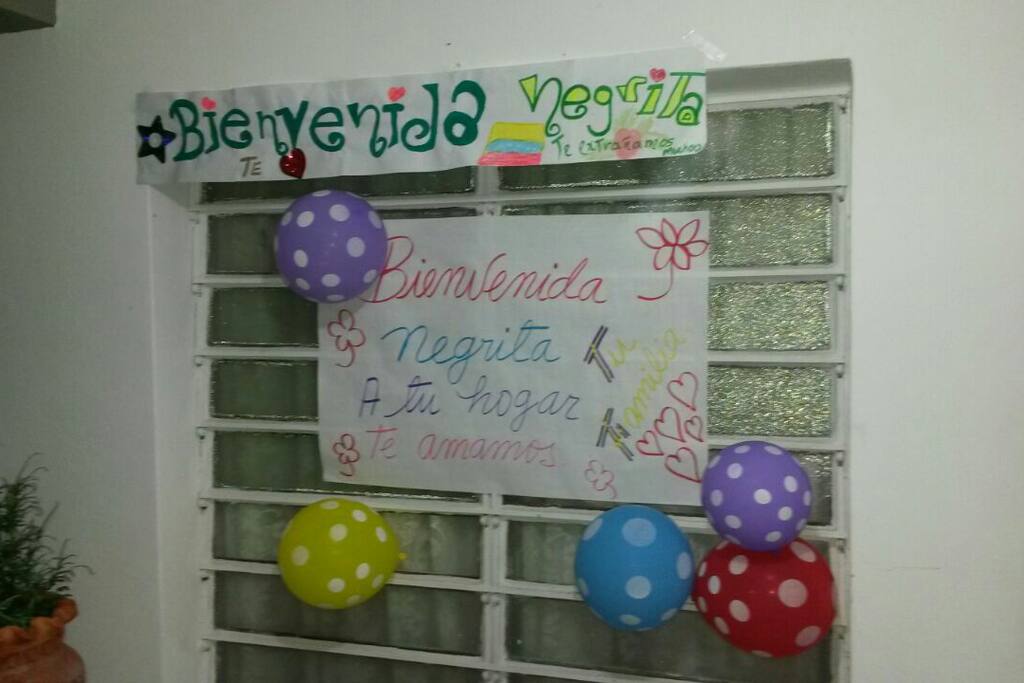 Bienvenida Negrita
TE
Te extrañamos
mucho
Bienvenida
Negrita
A tu hogar
Te amamos
Tu
Familia